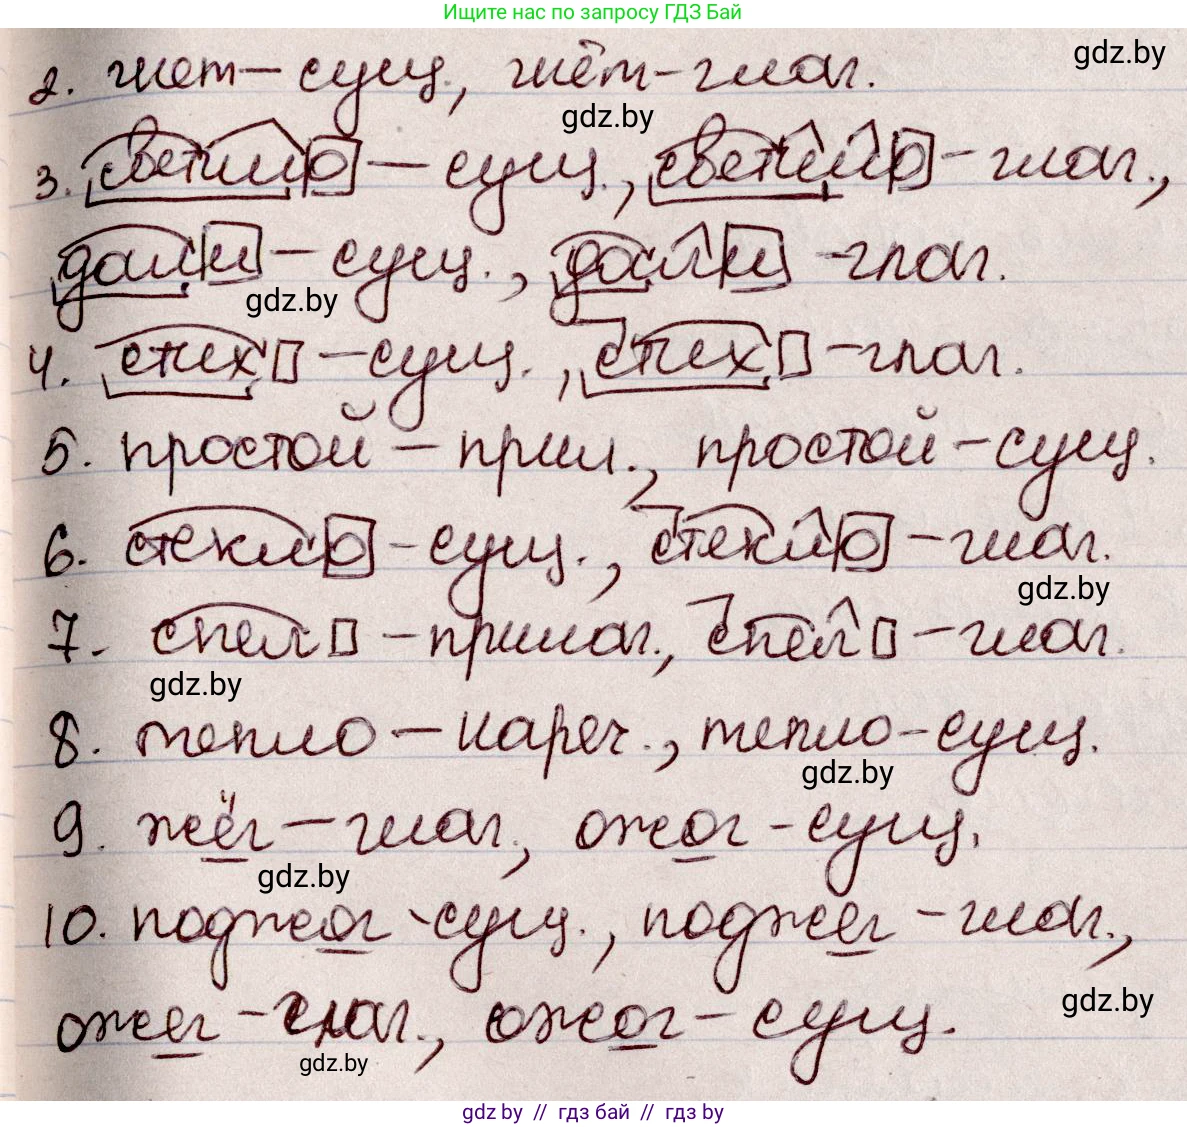 Ищите нас по запросу ГДЗ Бай
2. шет – сущ., шёт – глаг.
gdz.by
gdz.by
3. светило – сущ., светило – глаг.,
дали – сущ., дали – глаг.
gdz.by
4. спех – сущ., спех – глаг.
5. простой – прил., простой – сущ.
6. стекло – сущ., стекло – глаг.
gdz.by
7. спел – прилаг., спел – глаг.
gdz.by
8. тепло – нареч., тепло – сущ.
gdz.by
9. жёг – глаг., ожог – сущ.
gdz.by
10. поджог – сущ., поджег – глаг.,
gdz.by
ожег – глаг., ожог – сущ.
gdz.by
gdz by // гдз бай // гдз by